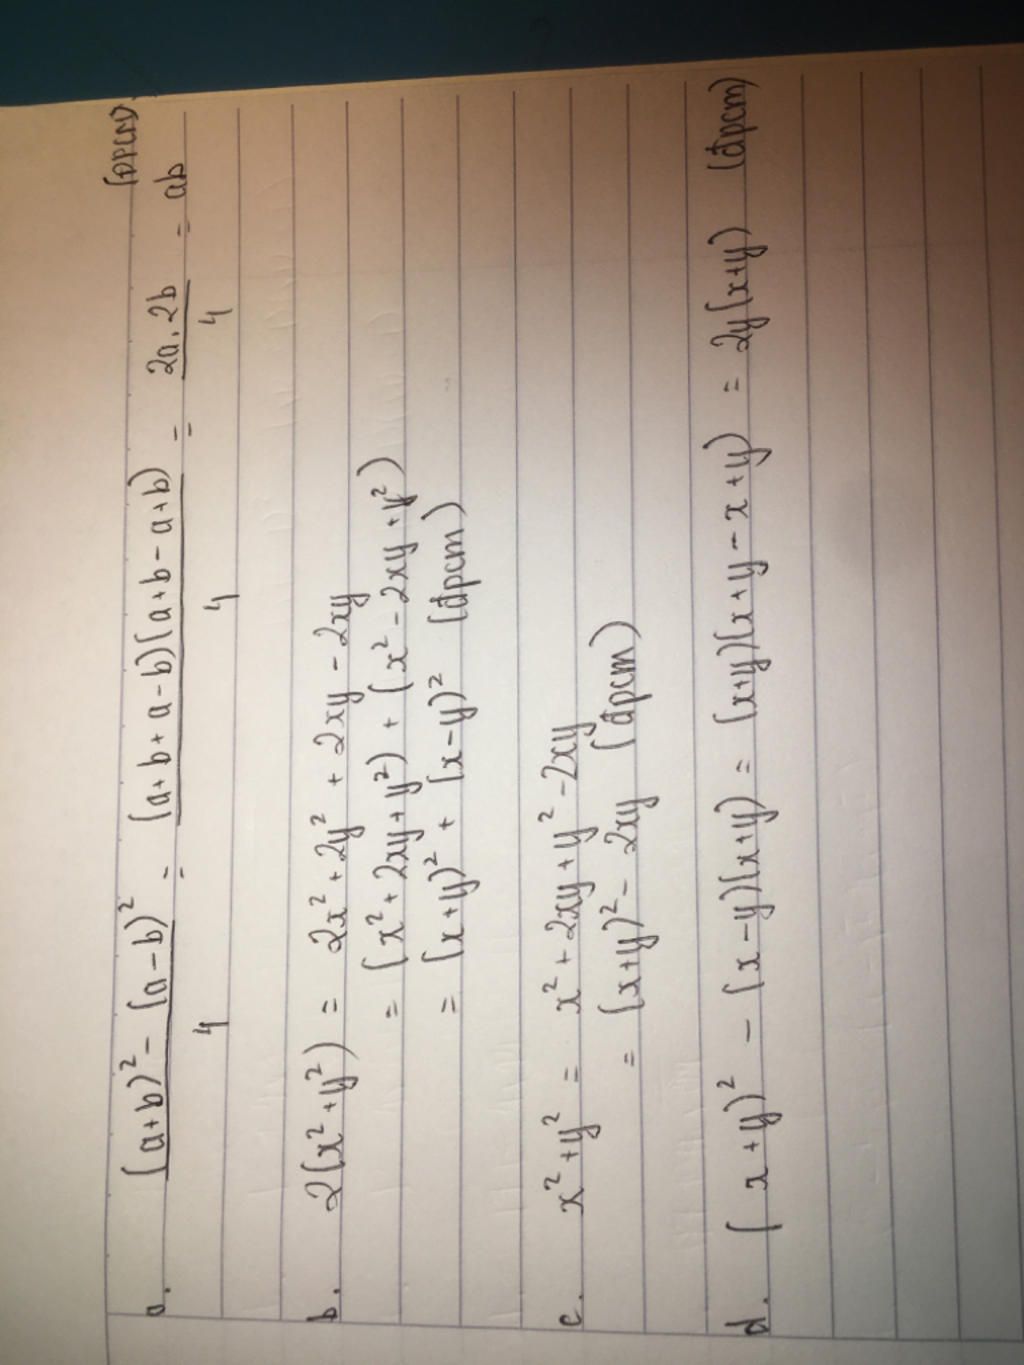 (ĐPCM)
a. ((a+b)² - (a-b)²)/4 = ((a+b+a-b)(a+b-a+b))/4 = (2a.2b)/4 = ab
b. 2(x²+y²) = 2x²+2y² + 2xy - 2xy
= (x²+2xy+y²) + (x²-2xy+y²)
= (x+y)² + (x-y)² (đpcm)
c. x²+y² = x²+2xy+y²-2xy
= (x+y)² - 2xy (đpcm)
d. (x+y)² - (x-y)(x+y) = (x+y)(x+y-x+y) = 2y(x+y) (đpcm)